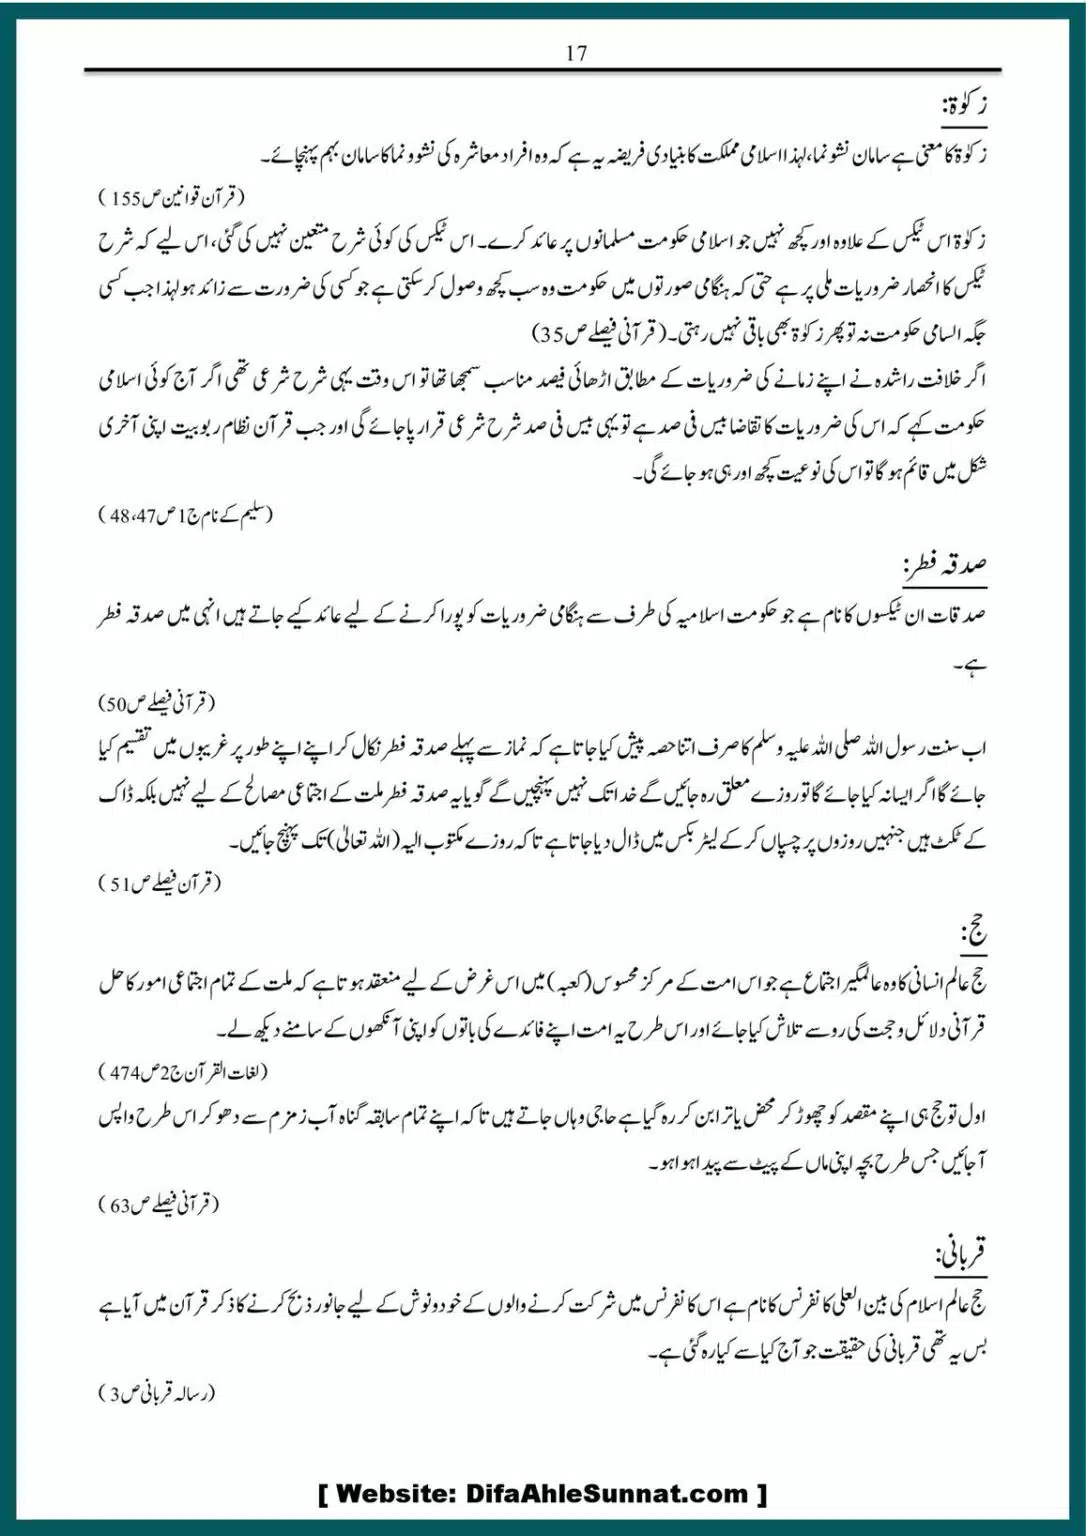 17
زکوٰۃ:
زکوٰۃ کا معنی ہے سامان نشوونما، لہذا اسلامی مملکت کا بنیادی فریضہ یہ ہے کہ وہ افراد معاشرہ کی نشوونما کا سامان بہم پہنچائے۔
(قرآن قوانین ص155)
زکوٰۃ اس ٹیکس کے علاوہ اور کچھ نہیں جو اسلامی حکومت مسلمانوں پر عائد کرے۔ اس ٹیکس کی کوئی شرح متعین نہیں کی گئی، اس لیے کہ شرح
ٹیکس کا انحصار ضروریات ملی پر ہے حتی کہ ہنگامی صورتوں میں حکومت وہ سب کچھ وصول کر سکتی ہے جو کسی کی ضرورت سے زائد ہو لہذا جب کسی
جگہ السامی حکومت نہ تو پھر زکوٰۃ بھی باقی نہیں رہتی۔ (قرآنی فیصلے ص35)
اگر خلافت راشدہ نے اپنے زمانے کی ضروریات کے مطابق اڑھائی فیصد مناسب سمجھا تھا تو اس وقت یہی شرح شرعی تھی اگر آج کوئی اسلامی
حکومت کہے کہ اس کی ضروریات کا تقاضا بیس فی صد ہے تو یہی بیس فی صد شرح شرعی قرار پا جائے گی اور جب قرآن نظام ربوبیت اپنی آخری
شکل میں قائم ہو گا تو اس کی نوعیت کچھ اور ہی ہو جائے گی۔
(سلیم کے نام ج1 ص47،48)
صدقہ فطر:
صدقات ان ٹیکسوں کا نام ہے جو حکومت اسلامیہ کی طرف سے ہنگامی ضروریات کو پورا کرنے کے لیے عائد کیے جاتے ہیں انہی میں صدقہ فطر
ہے۔
(قرآنی فیصلے ص50)
اب سنت رسول اللہ صلی اللہ علیہ وسلم کا صرف اتنا حصہ پیش کیا جاتا ہے کہ نماز سے پہلے صدقہ فطر نکال کر اپنے اپنے طور پر غریبوں میں تقسیم کیا
جائے گا اگر ایسا نہ کیا جائے گا تو روزے معلق رہ جائیں گے خدا تک نہیں پہنچیں گے گویا یہ صدقہ فطر ملت کے اجتماعی مصالح کے لیے نہیں بلکہ ڈاک
کے ٹکٹ ہیں جنہیں روزوں پر چسپاں کر کے لیٹر بکس میں ڈال دیا جاتا ہے تاکہ روزے مکتوب الیہ (اللہ تعالیٰ) تک پہنچ جائیں۔
(قرآن فیصلے ص51)
حج:
حج عالم انسانی کا وہ عالمگیر اجتماع ہے جو اس امت کے مرکز محسوس (کعبہ) میں اس غرض کے لیے منعقد ہوتا ہے کہ ملت کے تمام اجتماعی امور کا حل
قرآنی دلائل و حجت کی رو سے تلاش کیا جائے اور اس طرح یہ امت اپنے فائدے کی باتوں کو اپنی آنکھوں کے سامنے دیکھ لے۔
(لغات القرآن ج2 ص474)
اول تو حج ہی اپنے مقصد کو چھوڑ کر محض یاترا بن کر رہ گیا ہے حاجی وہاں جاتے ہیں تاکہ اپنے تمام سابقہ گناہ آب زمزم سے دھو کر اس طرح واپس
آ جائیں جس طرح بچہ اپنی ماں کے پیٹ سے پیدا ہوا ہو۔
(قرآنی فیصلے ص63)
قربانی:
حج عالم اسلام کی بین العلی کانفرنس کا نام ہے اس کانفرنس میں شرکت کرنے والوں کے خوردونوش کے لیے جانور ذبح کرنے کا ذکر قرآن میں آیا ہے
بس یہ تھی قربانی کی حقیقت جو آج کیا سے کیا رہ گئی ہے۔
(رسالہ قربانی ص3)
[ Website: DifaAhleSunnat.com ]